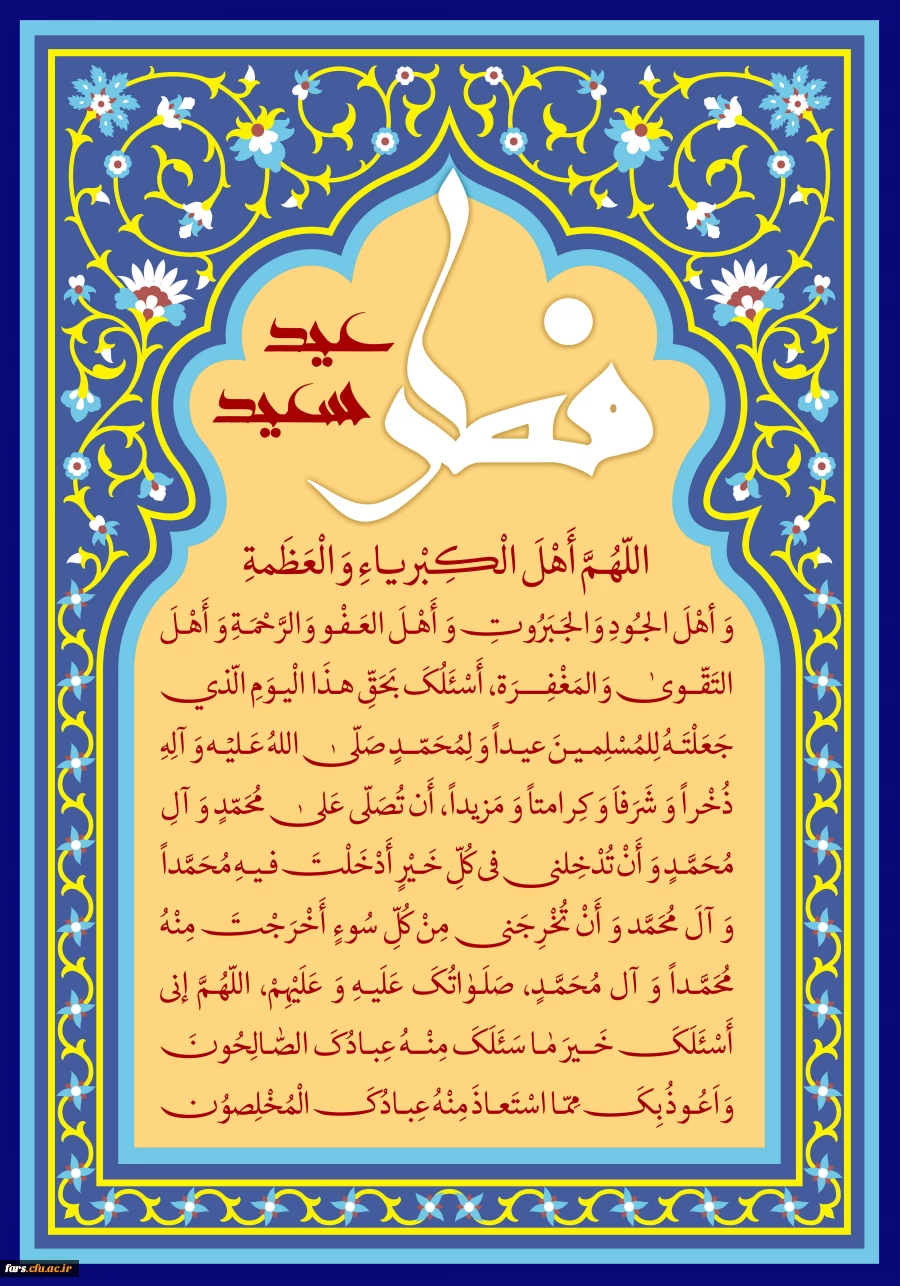 عید
سعید
فطر
اللّهُمَّ أَهْلَ الْکِبْریاءِ وَ الْعَظَمةِ
وَ أهْلَ الجُودِ وَ الجَبَرُوتِ وَ أَهْلَ العَفْو وَ الرَّحْمَةِ وَ أَهْلَ
التَقّویٰ وَ المَغْفِرَة، أَسْئَلُکَ بَحَقِّ هذَا الْیومِ الّذي
جَعَلْتَهُ لِلمُسْلِمینَ عیداً وَ لِمُحَمّدٍ صَلّیٰ اللهُ عَلیْه وَ آلِهِ
ذُخْراً وَ شَرَفاَ وَ کِرامتاً وَ مَزیداً، أَن تُصَلّی عَلیٰ مُحَمّدٍ وَ آلِ
مُحَمَّدٍ وَ أَنْ تُدْخِلنی فی کُلِّ خَیْرٍ أَدْخَلْتَ فیهِ مُحَمَّداً
وَ آلَ مُحَمَّد وَ أَنْ تُخْرِجَنی مِنْ کُلِّ سُوءٍ أَخْرَجْتَ مِنْهُ
مُحَمَّداً وَ آل مُحَمَّدٍ، صَلَوٰاتُکَ عَلَیهِ وَ عَلَیْهِمْ، اللّهُمَّ إنی
أَسْئَلَکَ خَیرَ مٰا سَئَلَکَ مِنْهُ عِبادُکَ الصّٰالِحُونَ
وَ اَعُوذُ بِکَ مِمّا اسْتَعاذَ مِنْهُ عِبادُکَ الْمُخْلِصوُن
fars.cfu.ac.ir